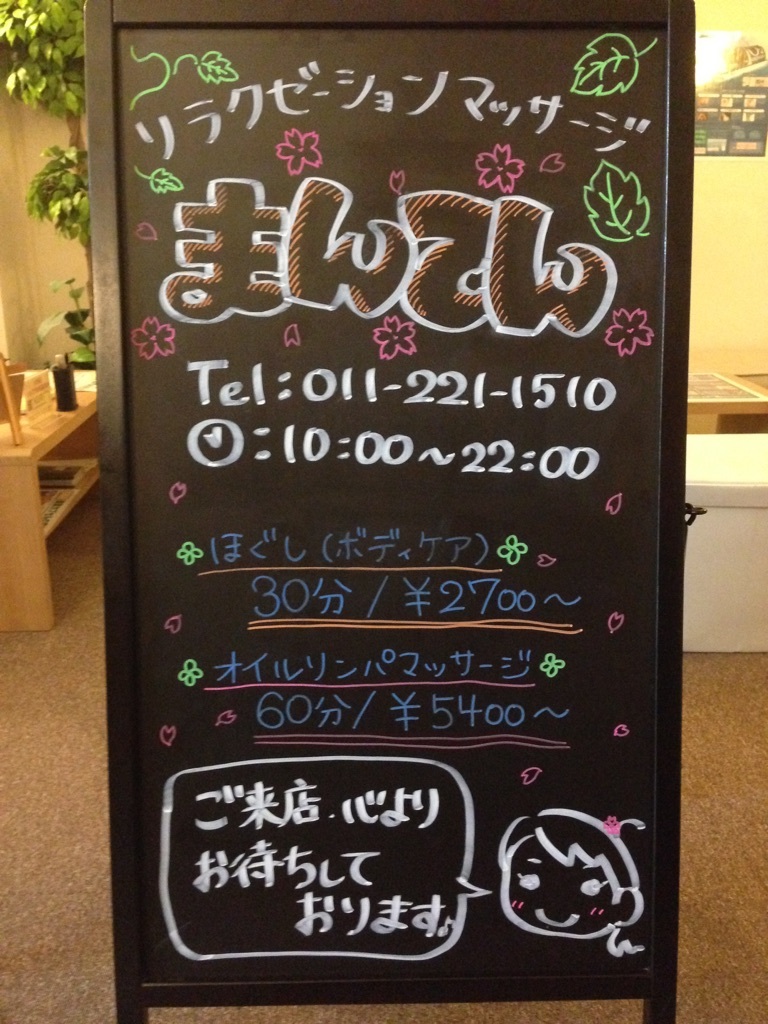 リラクゼーションマッサージ
まんてん
Tel:011-221-1510
:10:00~22:00
ほぐし(ボディケア)
30分/¥2700~
オイルリンパマッサージ
60分/¥5400~
ご来店、心より
お待ちして
おります♪